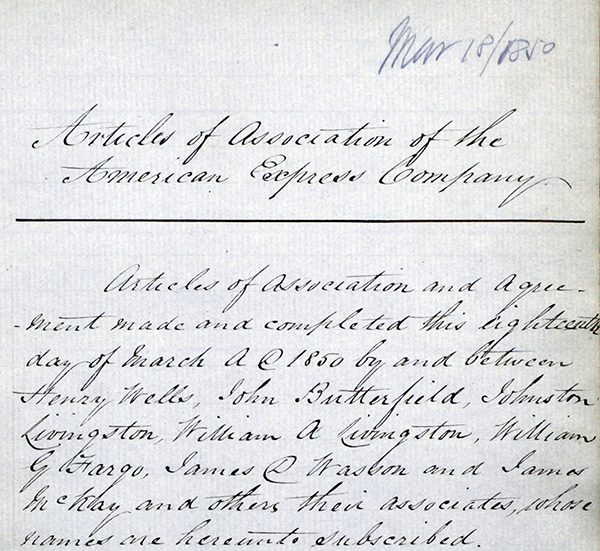 Mar 18/1850
Articles of Association of the
American Express Company
Articles of Association and Agree-
-ment made and completed this eighteenth
day of March A D 1850 by and between
Henry Wells, John Butterfield, Johnston
Livingston, William A Livingston, William
G Fargo, James D Wasson and James
McKay and others their associates, whose
names are hereunto subscribed.